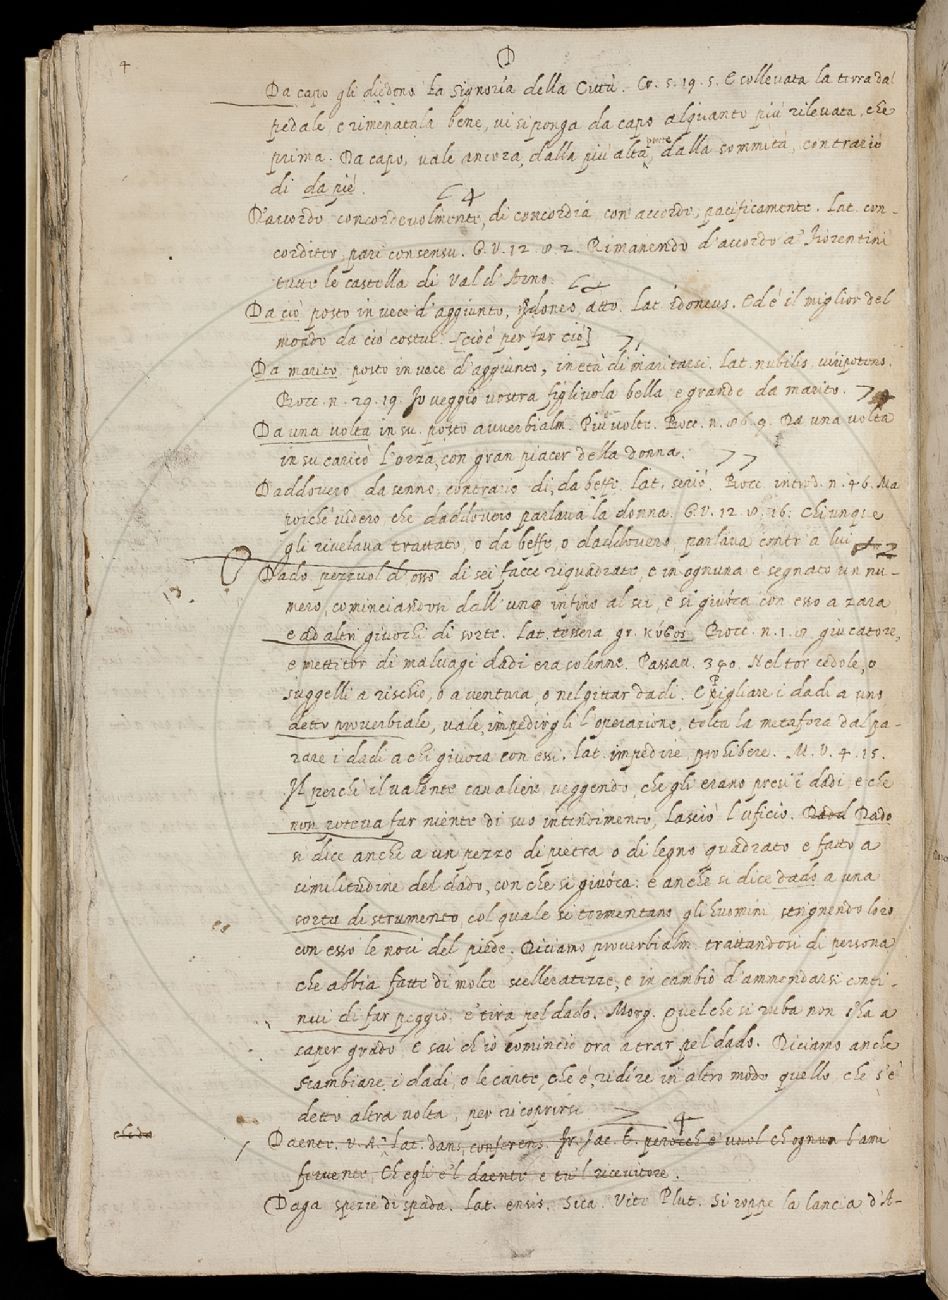 4
D
Da capo gli diedono la Signoria della Città. Cr. 5. 19. 5. E sollevata la terra dal
pedale, e rimenatala bene, vi si ponga da capo alquanto più rilevata, che
prima. Da capo, vale ancora, dalla più alta parte, dalla sommità, contrario
di da piè.
D'accordo concordevolmente, di concordia, con accordo, pacificamente. Lat. con-
corditer, pari consensu. G. V. 12. 8. 2. Rimanendo d'accordo a' Fiorentini
tutte le castella di Val d'Arno.
Da ciò posto in vece d'aggiunto, idoneo, atto. Lat. idoneus. Ed è il miglior del
mondo da ciò costui. [cioè per far ciò]
Da marito posto in vece d'aggiunto, in età di maritarsi. Lat. nubilis, viripotens.
Bocc. n. 29. 19. Io veggio vostra figlivola bella, e grande da marito.
Da una volta in su. posto avverbialm. Più volte. Bocc. n. 86. 9. Da una volta
in su caricò l'orza, con gran piacer della donna.
Daddovero da senno, contrario di, da beffe. Lat. seriò. Bocc. introd. n. 46. Ma
poichè videro che daddovero parlava la donna. G. V. 12. 8. 16. Chiunque
gli rivelava trattato, o da beffe, o daddovero parlava contr' a lui
Dado pezzuol d'osso di sei facce riquadrate, e in ognuna è segnato un nu-
mero, cominciandosi dall' uno infino al sei, e si giuoca con esso a zara
e ad altri giuochi di sorte. Lat. tessera gr. κύβος. Bocc. n. 1. 8. giucatore,
e mettitor di malvagi dadi era solenne. Passav. 340. Nel tor cedole, o
suggelli a rischio, o a ventura, o nel gittar dadi. E pigliare i dadi a uno
detto proverbiale, vale, impedirgli l'operazione, tolta la metafora dal pa-
rare i dadi a chi giuoca con essi. Lat. impedire, prohibere. M. V. 4. 15.
Il perchè il valente cavaliere veggendo, che gli erano presi i dadi, e che
non poteva far niente di suo intendimento, lasciò l'uficio. Dado
si dice anche a un pezzo di pietra o di legno quadrato e fatto a
similitudine del dado, con che si giuoca: e anche si dice dado a una
sorta di strumento col quale si tormentano gli huomini strignendo loro
con esso le noci del piede. Diciamo proverbialm. trattandosi di persona
che abbia fatte di molte scelleratezze, e in cambio d'ammendarsi conti-
nui di far peggio. e' tira pel dado. Morg. Quel che si ruba non s'ha a
saper grado, E sai ch' io comincio ora a trar pel dado. Diciamo anche
Scambiare i dadi, o le carte, che è, ridire in altro modo quello che s'è
detto altra volta, per ricoprirsi
Daente. V. A. Lat. dans, conferens. Fr. Jac. T. perocchè e' vuol ch' ognun l'ami
fervente, Ch' egli è 'l daente e tu 'l ricevitore.
Daga spezie di spada. Lat. ensis. Sica. Vite Plut. Si roppe la lancia d'A-